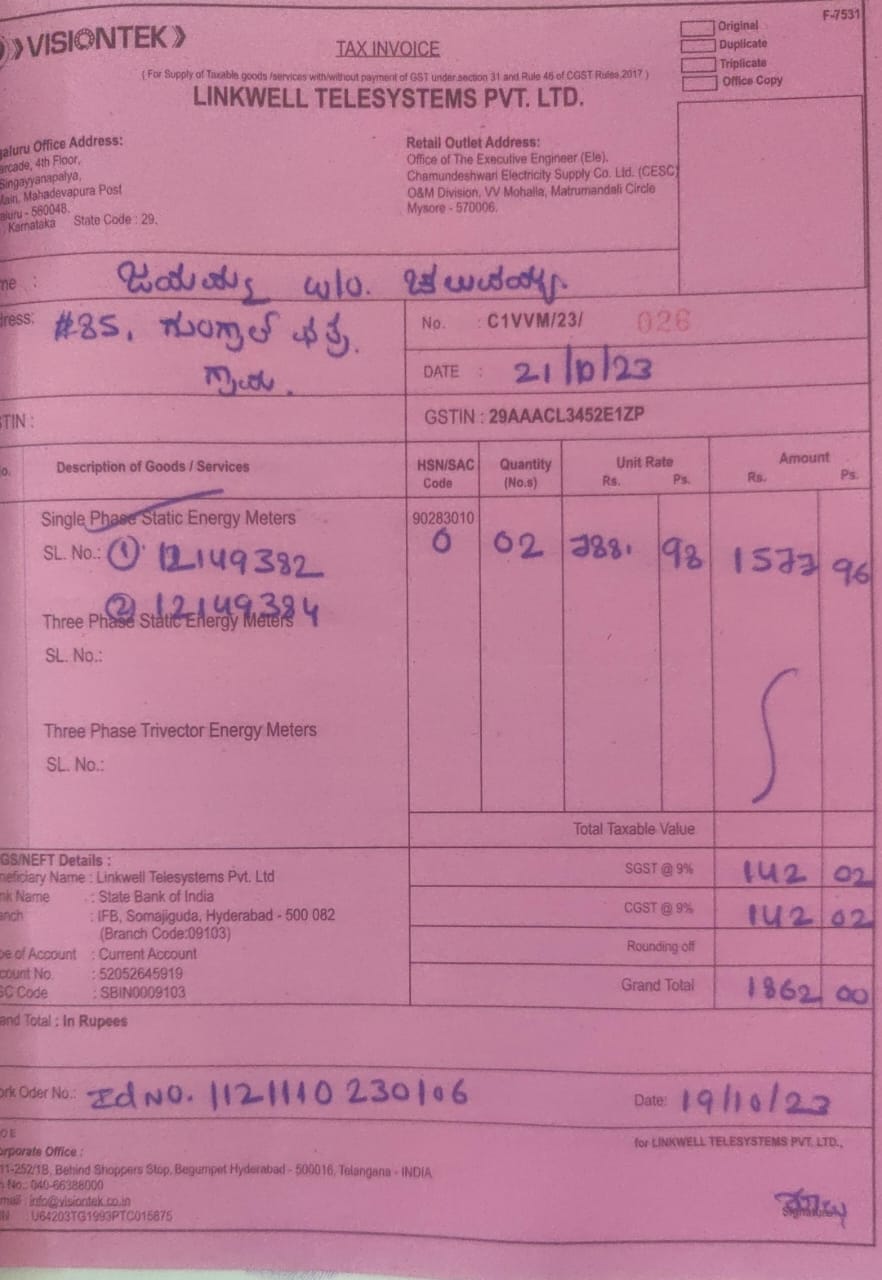 VISIONTEK
F-7531
TAX INVOICE
Original
Duplicate
Triplicate
Office Copy
( For Supply of Taxable goods /services with/without payment of GST under section 31 and Rule 46 of CGST Rules 2017 )
LINKWELL TELESYSTEMS PVT. LTD.
aluru Office Address:
arcade, 4th Floor,
Singayyanapalya,
Main, Mahadevapura Post
aluru - 560048.
Karnataka State Code : 29.
Retail Outlet Address:
Office of The Executive Engineer (Ele).
Chamundeshwari Electricity Supply Co. Ltd. (CESC)
O&M Division, VV Mohalla, Matrumandali Circle
Mysore - 570006.
me : ಜಯಮ್ಮ w/o.
ress: #85,
No. : C1VVM/23/ 026
DATE : 21/10/23
STIN :
GSTIN : 29AAACL3452E1ZP
o. Description of Goods / Services HSN/SAC Code Quantity (No.s) Unit Rate Rs. Ps. Amount Rs. Ps.
Single Phase Static Energy Meters 90283010
SL. No.: ① 12149382 0 02 788. 98 1577 96
② 12149384
Three Phase Static Energy Meters
SL. No.:
Three Phase Trivector Energy Meters
SL. No.:
Total Taxable Value
GS/NEFT Details :
neficiary Name : Linkwell Telesystems Pvt. Ltd
nk Name : State Bank of India
anch : IFB, Somajiguda, Hyderabad - 500 082
(Branch Code:09103)
pe of Account : Current Account
count No. : 52052645919
SC Code : SBIN0009103
SGST @ 9% 142 02
CGST @ 9% 142 02
Rounding off
Grand Total 1862 00
and Total : In Rupees
ork Oder No.: Id NO. 1121110230106 Date: 19/10/23
O E
orporate Office :
11-252/1B, Behind Shoppers Stop, Begumpet Hyderabad - 500016, Telangana - INDIA
No.: 040-66388000
mail : info@visiontek.co.in
IN : U64203TG1993PTC015875
for LINKWELL TELESYSTEMS PVT. LTD.,
Signature